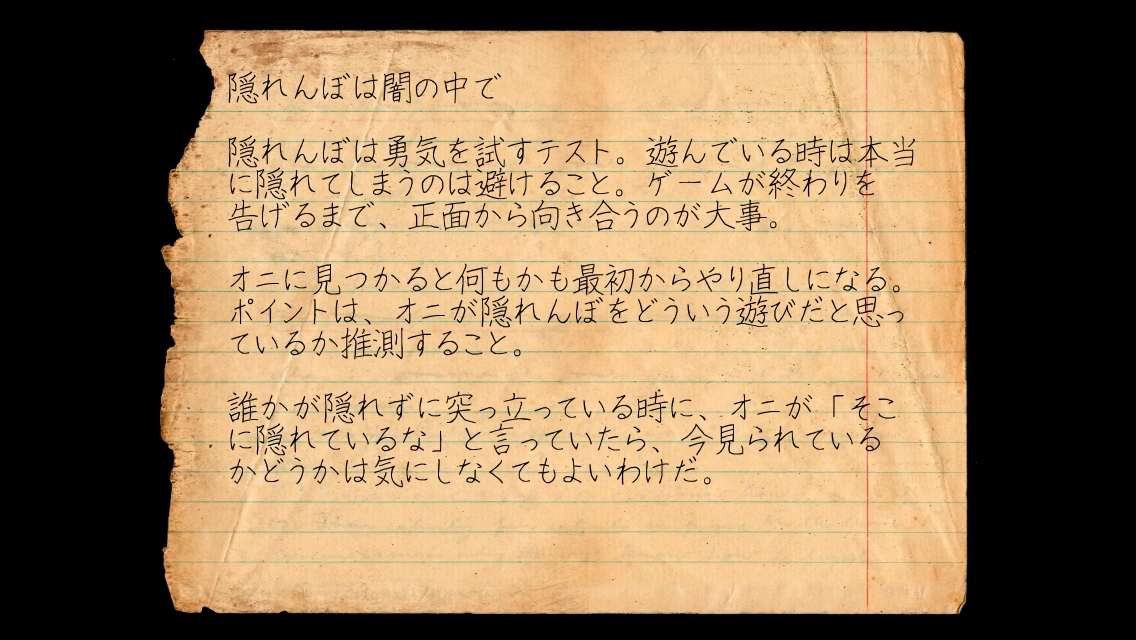 隠れんぼは闇の中で
隠れんぼは勇気を試すテスト。遊んでいる時は本当
に隠れてしまうのは避けること。ゲームが終わりを
告げるまで、正面から向き合うのが大事。
オニに見つかると何もかも最初からやり直しになる。
ポイントは、オニが隠れんぼをどういう遊びだと思っ
ているか推測すること。
誰かが隠れずに突っ立っている時に、オニが「そこ
に隠れているな」と言っていたら、今見られている
かどうかは気にしなくてもよいわけだ。